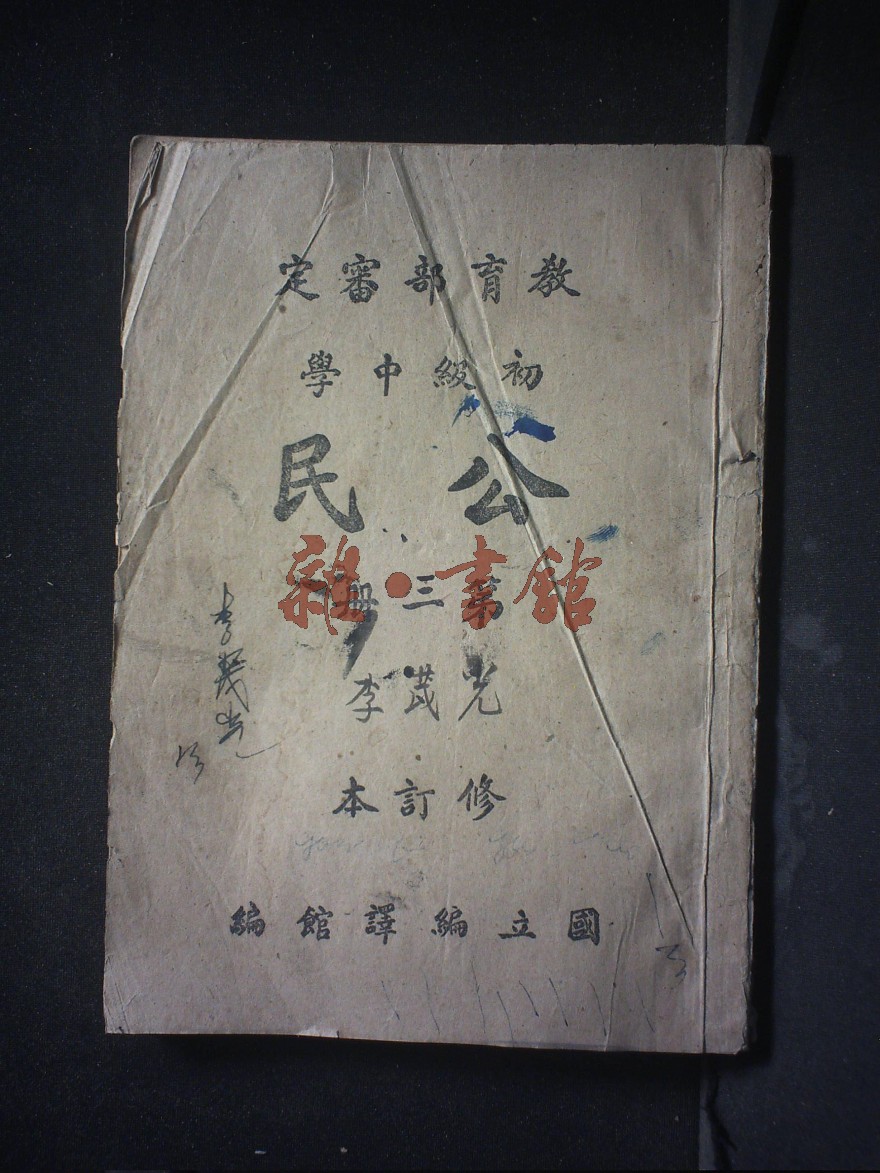 教育部審定
初級中學
公民
第三冊
雜·書館
李茂光
李茂光
修訂本
國立編譯館編